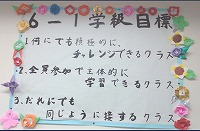 6-1学級目標
1.何にでも積極的に、
チャレンジできるクラス
2.全員参加で主体的に
学習できるクラス
3.だれにでも
同じように接するクラス